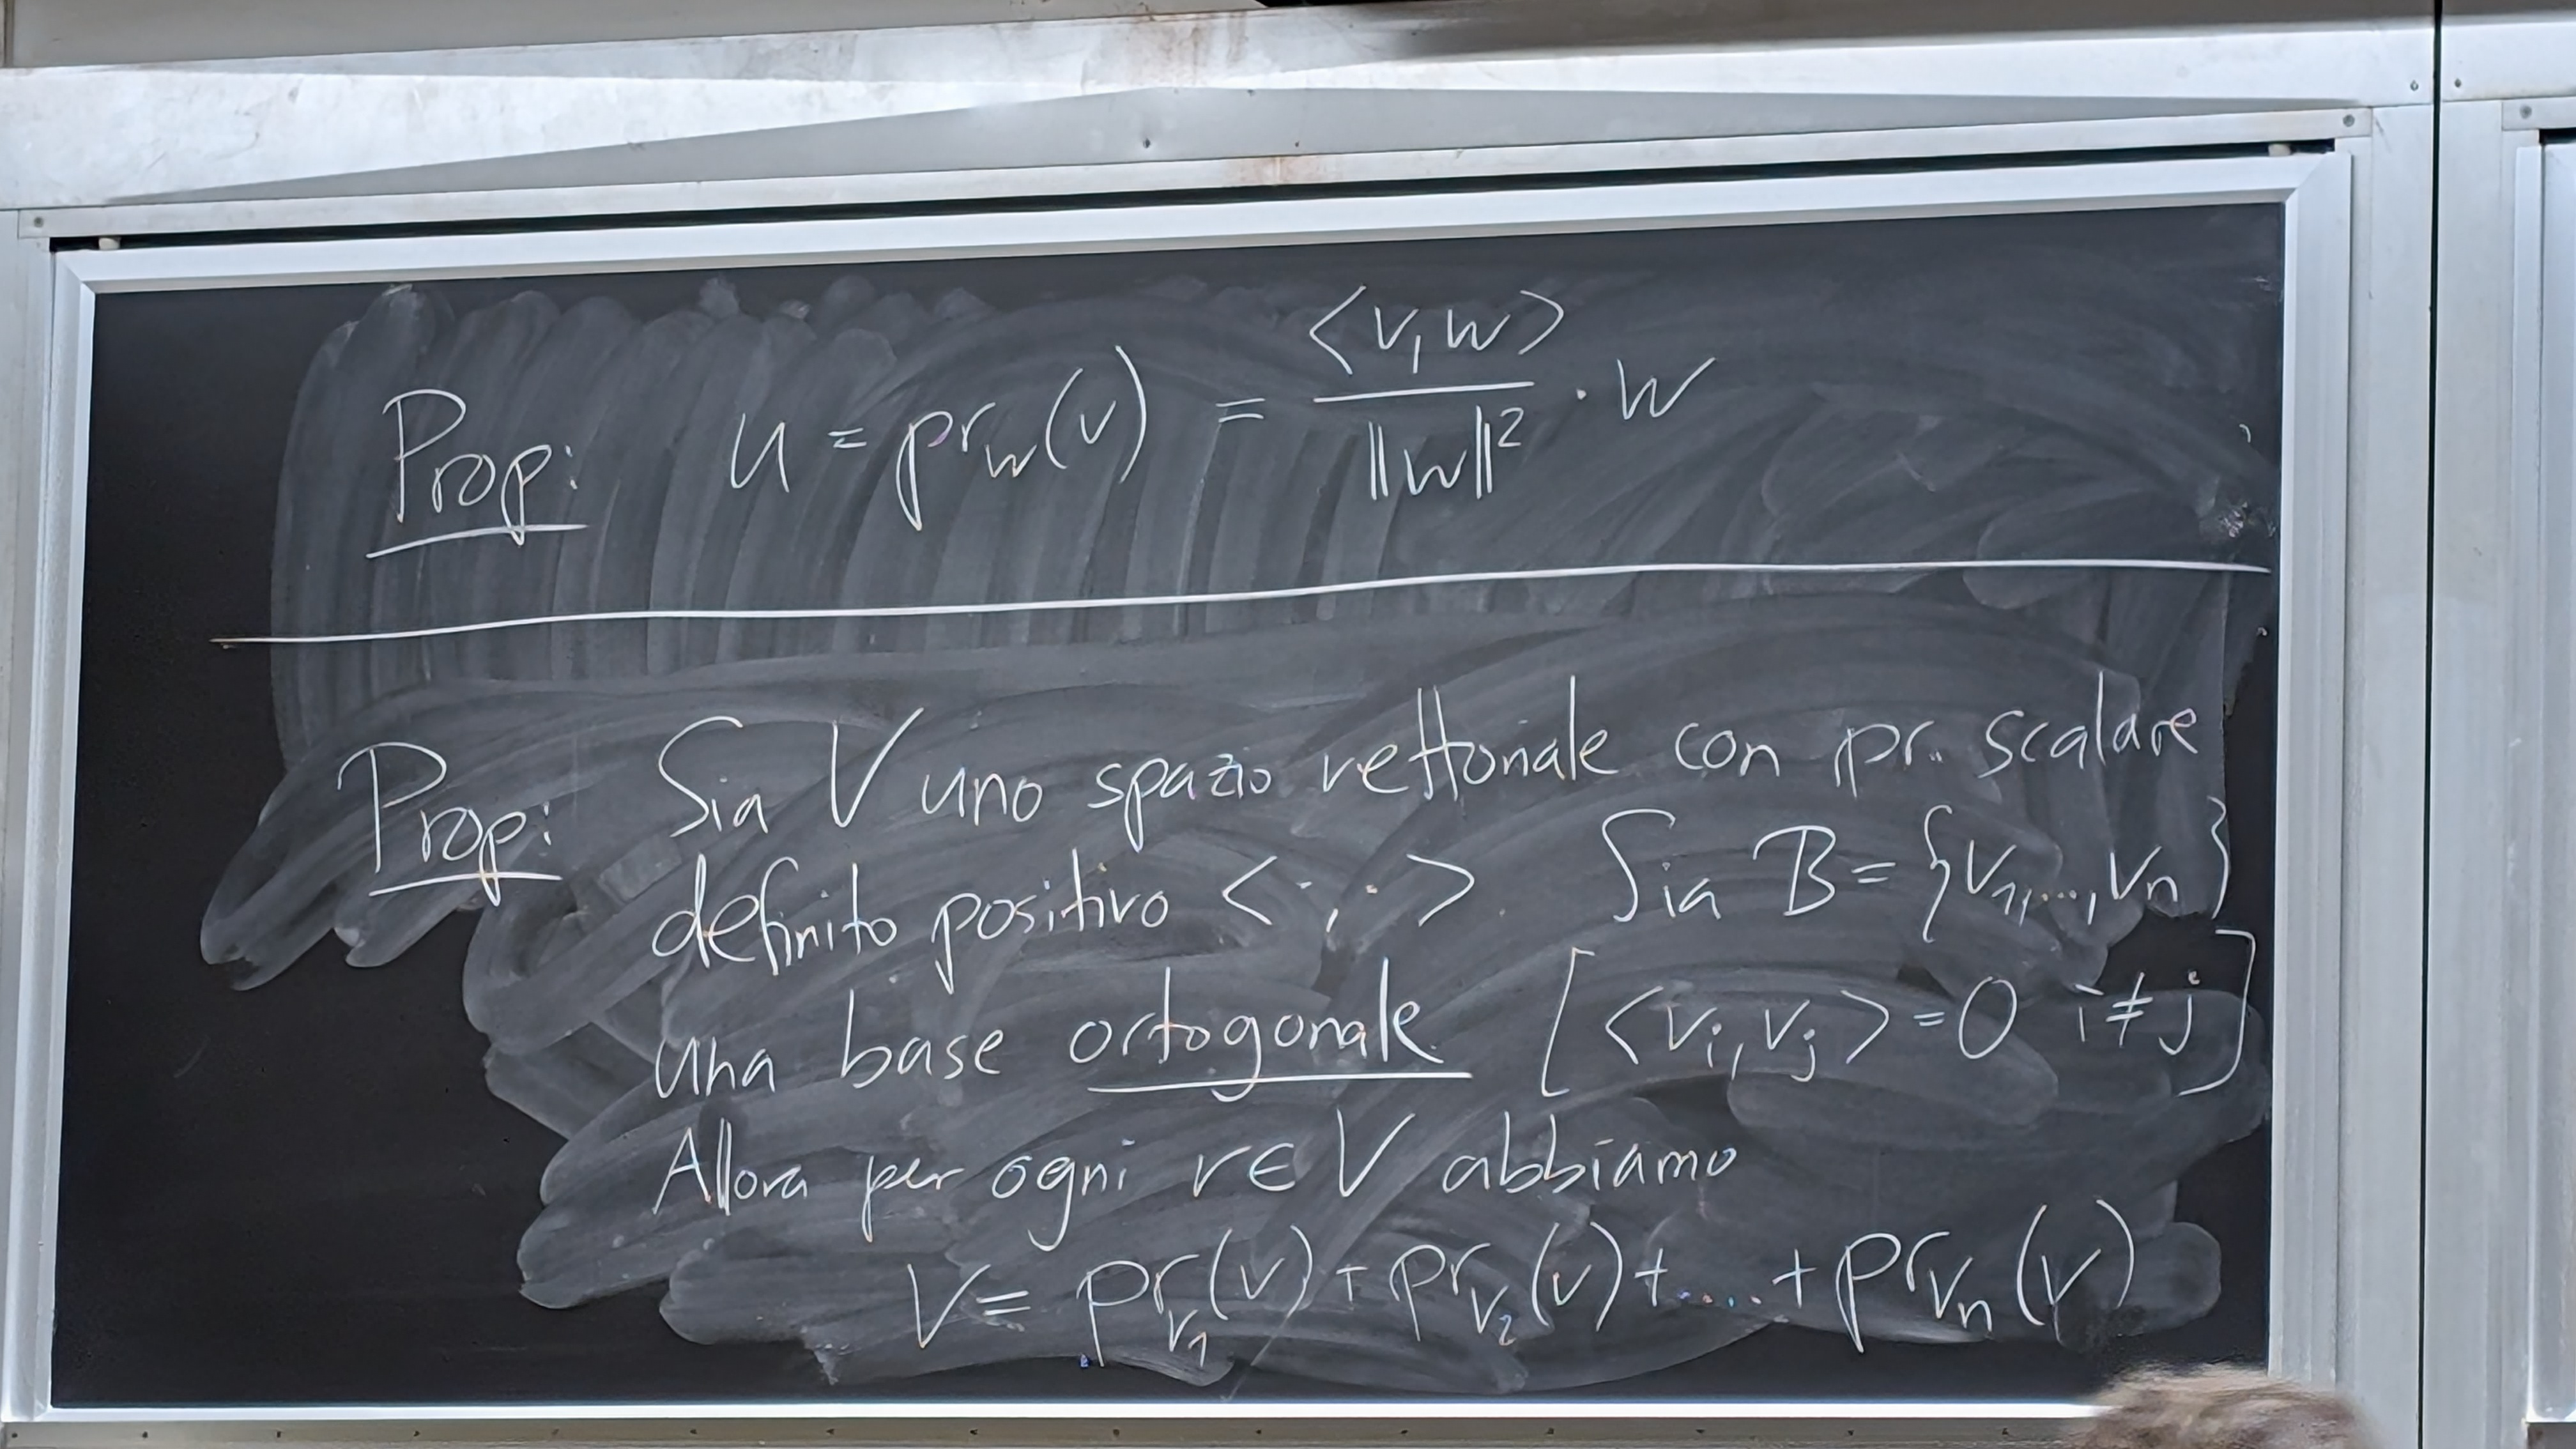 Prop: u = pr_w(v) = <v,w> / ||w||² · w
Prop: Sia V uno spazio vettoriale con pr. scalare
definito positivo < · , · >. Sia B = {v₁,...,vₙ}
una base ortogonale [<vᵢ,vⱼ> = 0 i ≠ j]
Allora per ogni v ∈ V abbiamo
v = pr_v₁(v) + pr_v₂(v) + .... + pr_vₙ(v)